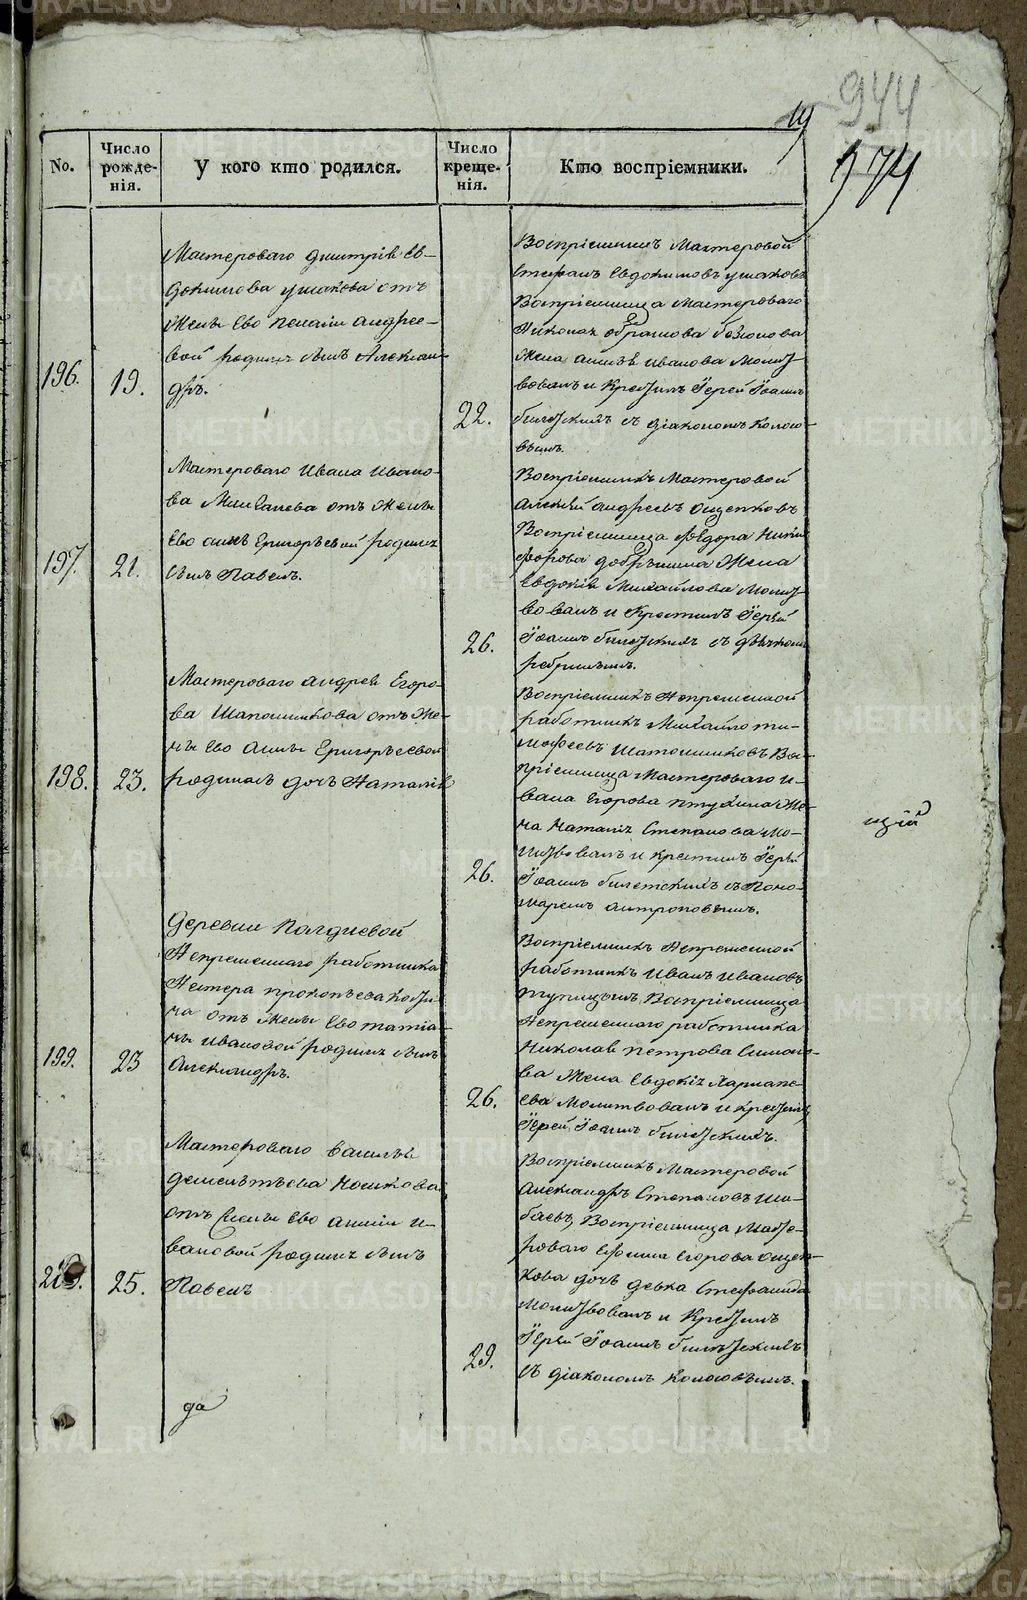 944
19
974
No.
Число рожденія.
У кого кто родился.
Число крещенія.
Кто воспріемники.
196.
19.
Мастероваго Димитрія Ев-
докимова Ушакова отъ
Жены Ево Пелагіи Андрее-
вой родился сынъ Алексан-
дръ.
22.
Воспріемникъ Мастеровой
Стефанъ Евдокимовъ Ушаковъ
Воспріемница Мастероваго
Николая
Жена Иванова Молит
вовалъ и Крестилъ Іерей Іоаннъ
съ діакономъ Колосо-
вымъ.
197.
21.
Мастероваго Ивана Ивано-
ва отъ Жены
Ево Анны Григорьевой родился
сынъ Павелъ.
26.
Воспріемникъ Мастеровой
Алексѣй Андреевъ Ощепковъ
Воспріемница Федора Ники
форова Жена
Евдокія Михайлова Молит
вовалъ и Крестилъ Іерей
Іоаннъ съ дьячкомъ
198.
23.
Мастероваго Андрея Егоро-
ва Шапошникова отъ Же-
ны Ево Анны Григорьевой
родилась дочь Наталія
26.
Воспріемникъ Непремѣнной
работникъ Михайло Ти-
мофеевъ Шапошниковъ Вос-
пріемница Мастероваго И-
вана Егорова Птухина Же-
на Наталія Степанова Мо-
литвовалъ и крестилъ Іерей
Іоаннъ съ Поно-
маремъ Антроповымъ.
199.
23
Деревни
Непремѣннаго работника
Нестера Прокопьева
на отъ Жены Ево Татія-
ны Ивановой родился сынъ
Александръ.
26.
Воспріемникъ Непремѣнной
работникъ Иванъ Ивановъ
Тупицынъ, Воспріемница
Непремѣннаго работника
Николая Петрова Симоно-
ва Жена Евдокія
ева Молитвовалъ и крестилъ
Іерей Іоаннъ
200.
25.
Мастероваго Василья
Дементьева Ношкова
отъ Жены Ево Анны И-
вановой родился сынъ
Павелъ
29.
Воспріемникъ Мастеровой
Александръ Степановъ Ши-
баевъ, Воспріемница Масте-
роваго Ефима Егорова Ощеп-
кова дочь девка Стефанида
Молитвовалъ и Крестилъ
Іерей Іоаннъ
съ діакономъ Колосовымъ.
да
METRIKI.GASO-URAL.RU